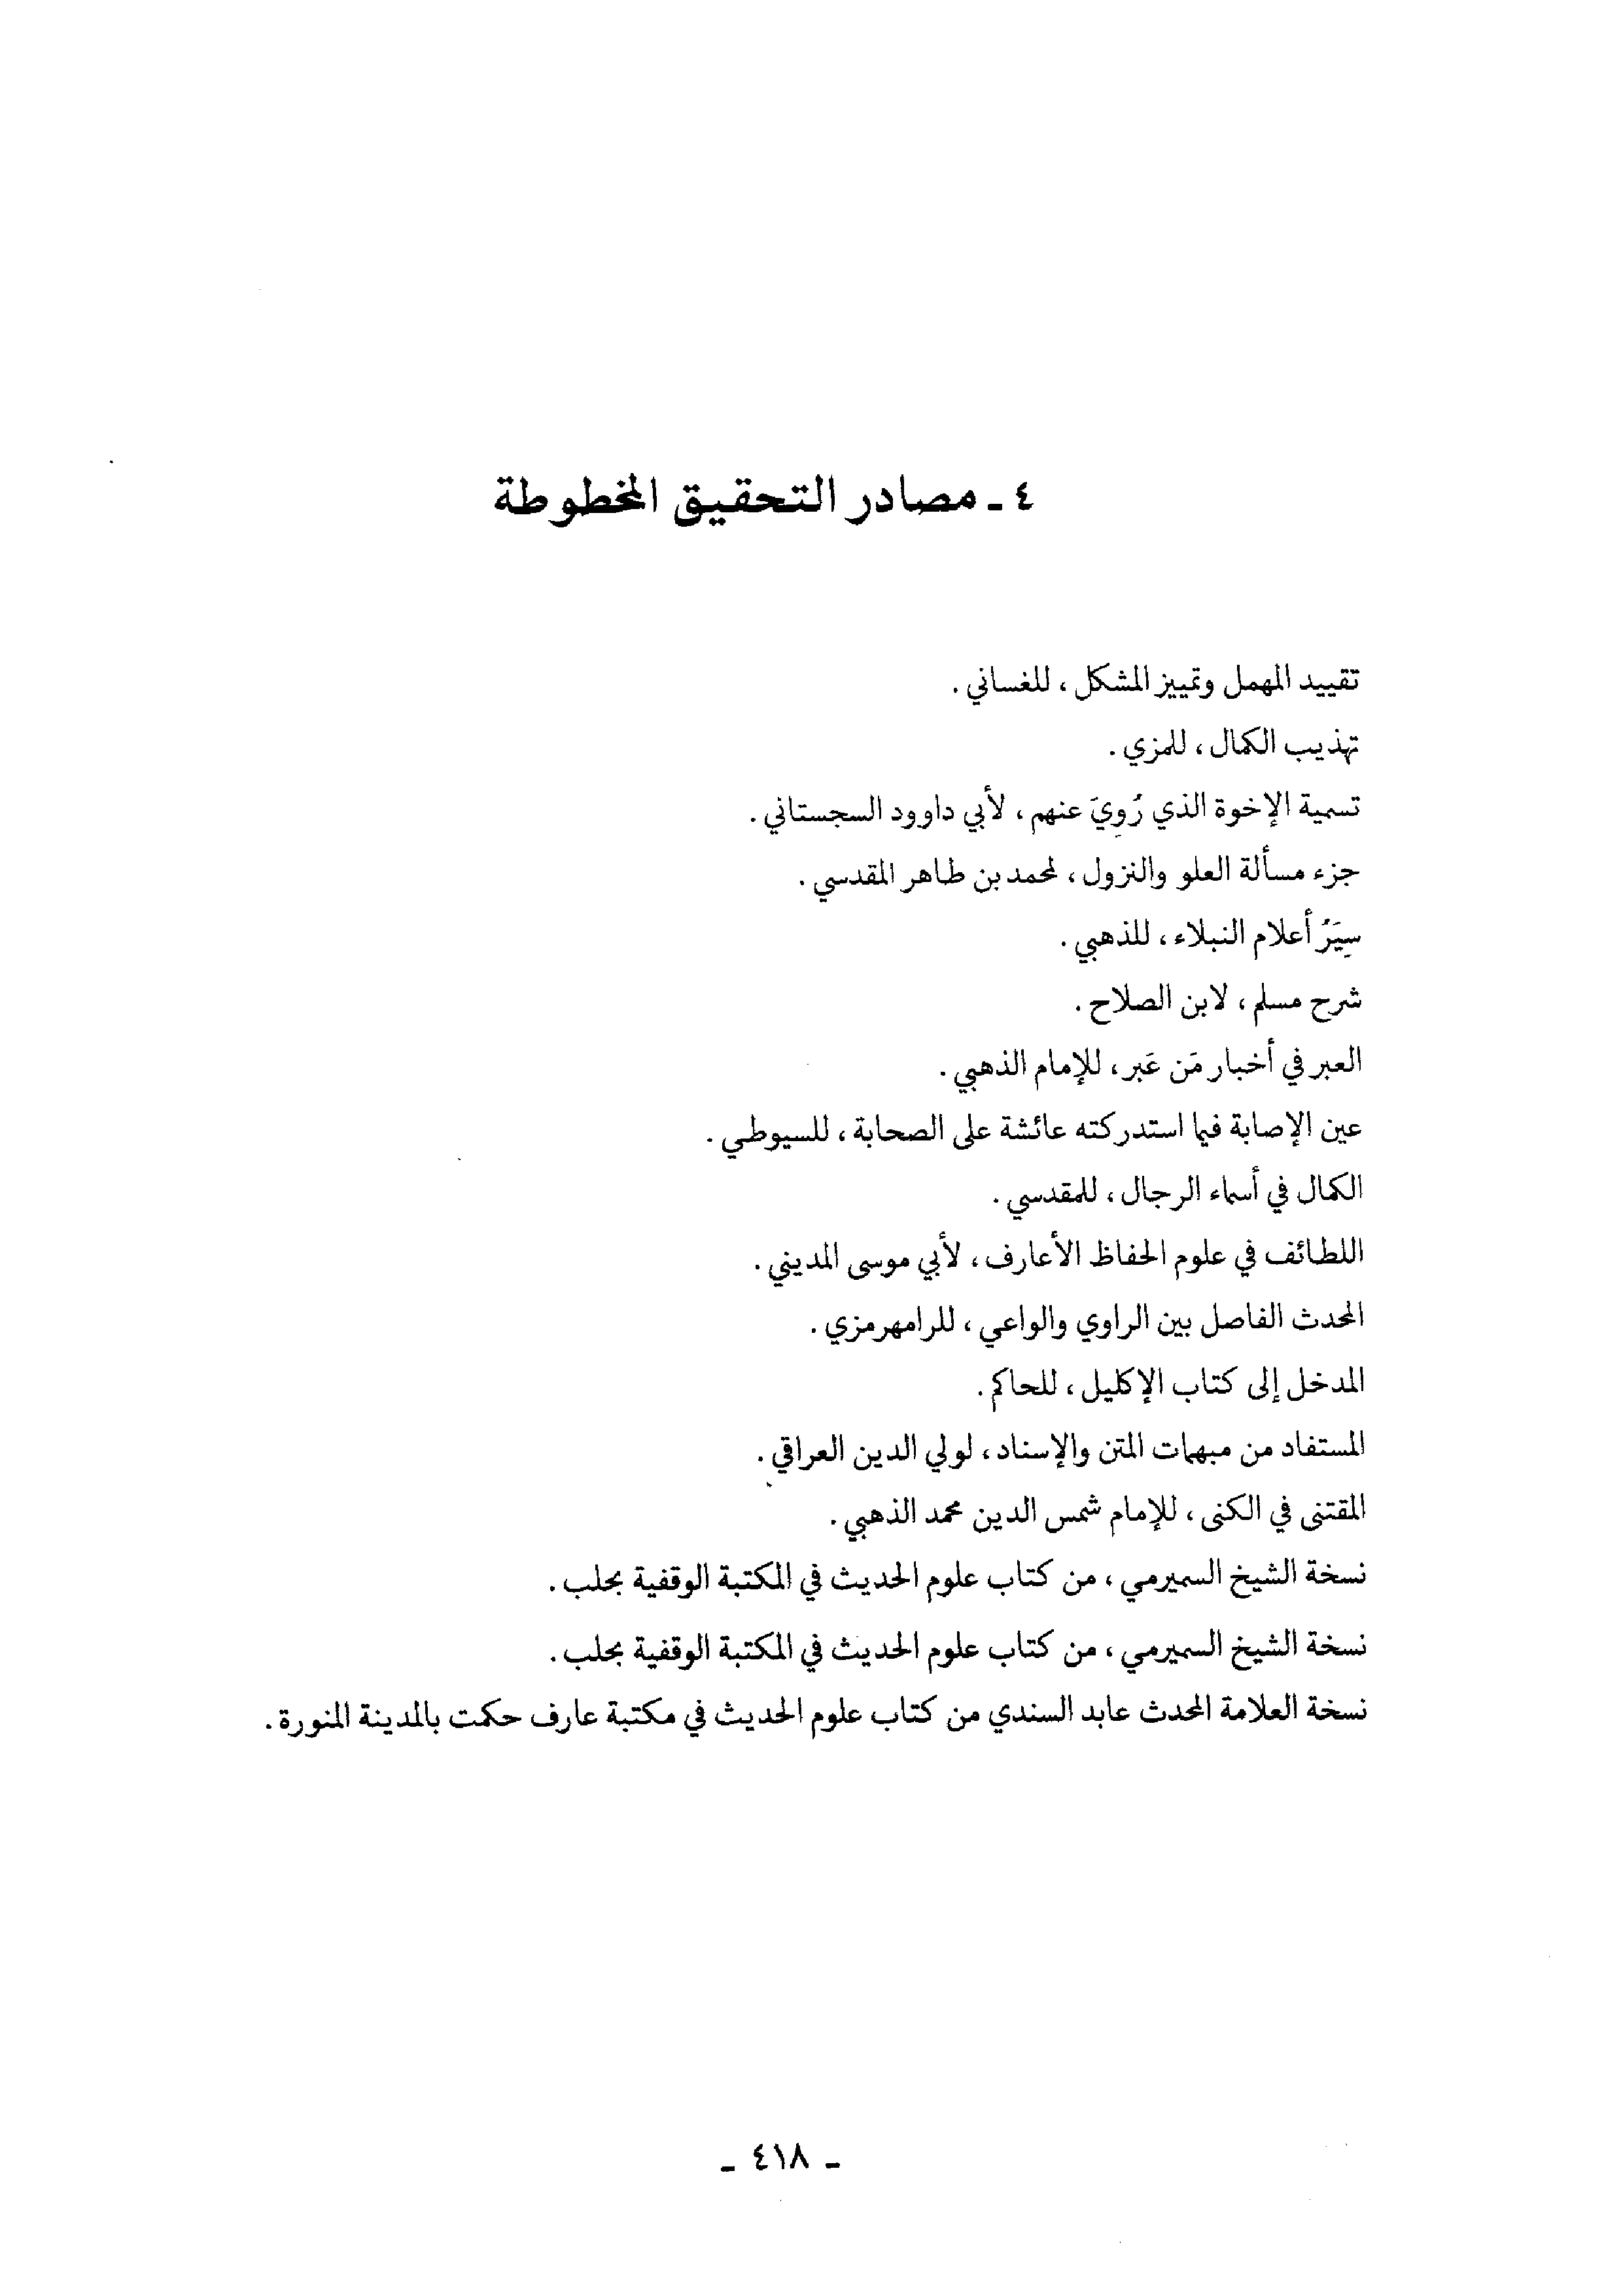 ٤ ـ مصادر التحقيق المخطوطة
تقييد المهمل وتمييز المشكل ، للغساني .
تهذيب الكمال ، للمزي .
تسمية الإخوة الذي رُوِيَ عنهم ، لأبي داوود السجستاني .
جزء مسألة العلو والنزول ، لمحمد بن طاهر المقدسي .
سِيَرُ أعلام النبلاء ، للذهبي .
شرح مسلم ، لابن الصلاح .
العبر في أخبار مَن عَبر ، للإمام الذهبي .
عين الإصابة فيما استدركته عائشة على الصحابة ، للسيوطي .
الكمال في أسماء الرجال ، للمقدسي .
اللطائف في علوم الحفاظ الأعارف ، لأبي موسى المديني .
المحدث الفاصل بين الراوي والواعي ، للرامهرمزي .
المدخل إلى كتاب الإكليل ، للحاكم .
المستفاد من مبهمات المتن والإسناد ، لولي الدين العراقي .
المقتنى في الكنى ، للإمام شمس الدين محمد الذهبي .
نسخة الشيخ السميرمي ، من كتاب علوم الحديث في المكتبة الوقفية بحلب .
نسخة الشيخ السميرمي ، من كتاب علوم الحديث في المكتبة الوقفية بحلب .
نسخة العلامة المحدث عابد السندي من كتاب علوم الحديث في مكتبة عارف حكمت بالمدينة المنورة .
ـ ٤١٨ ـ